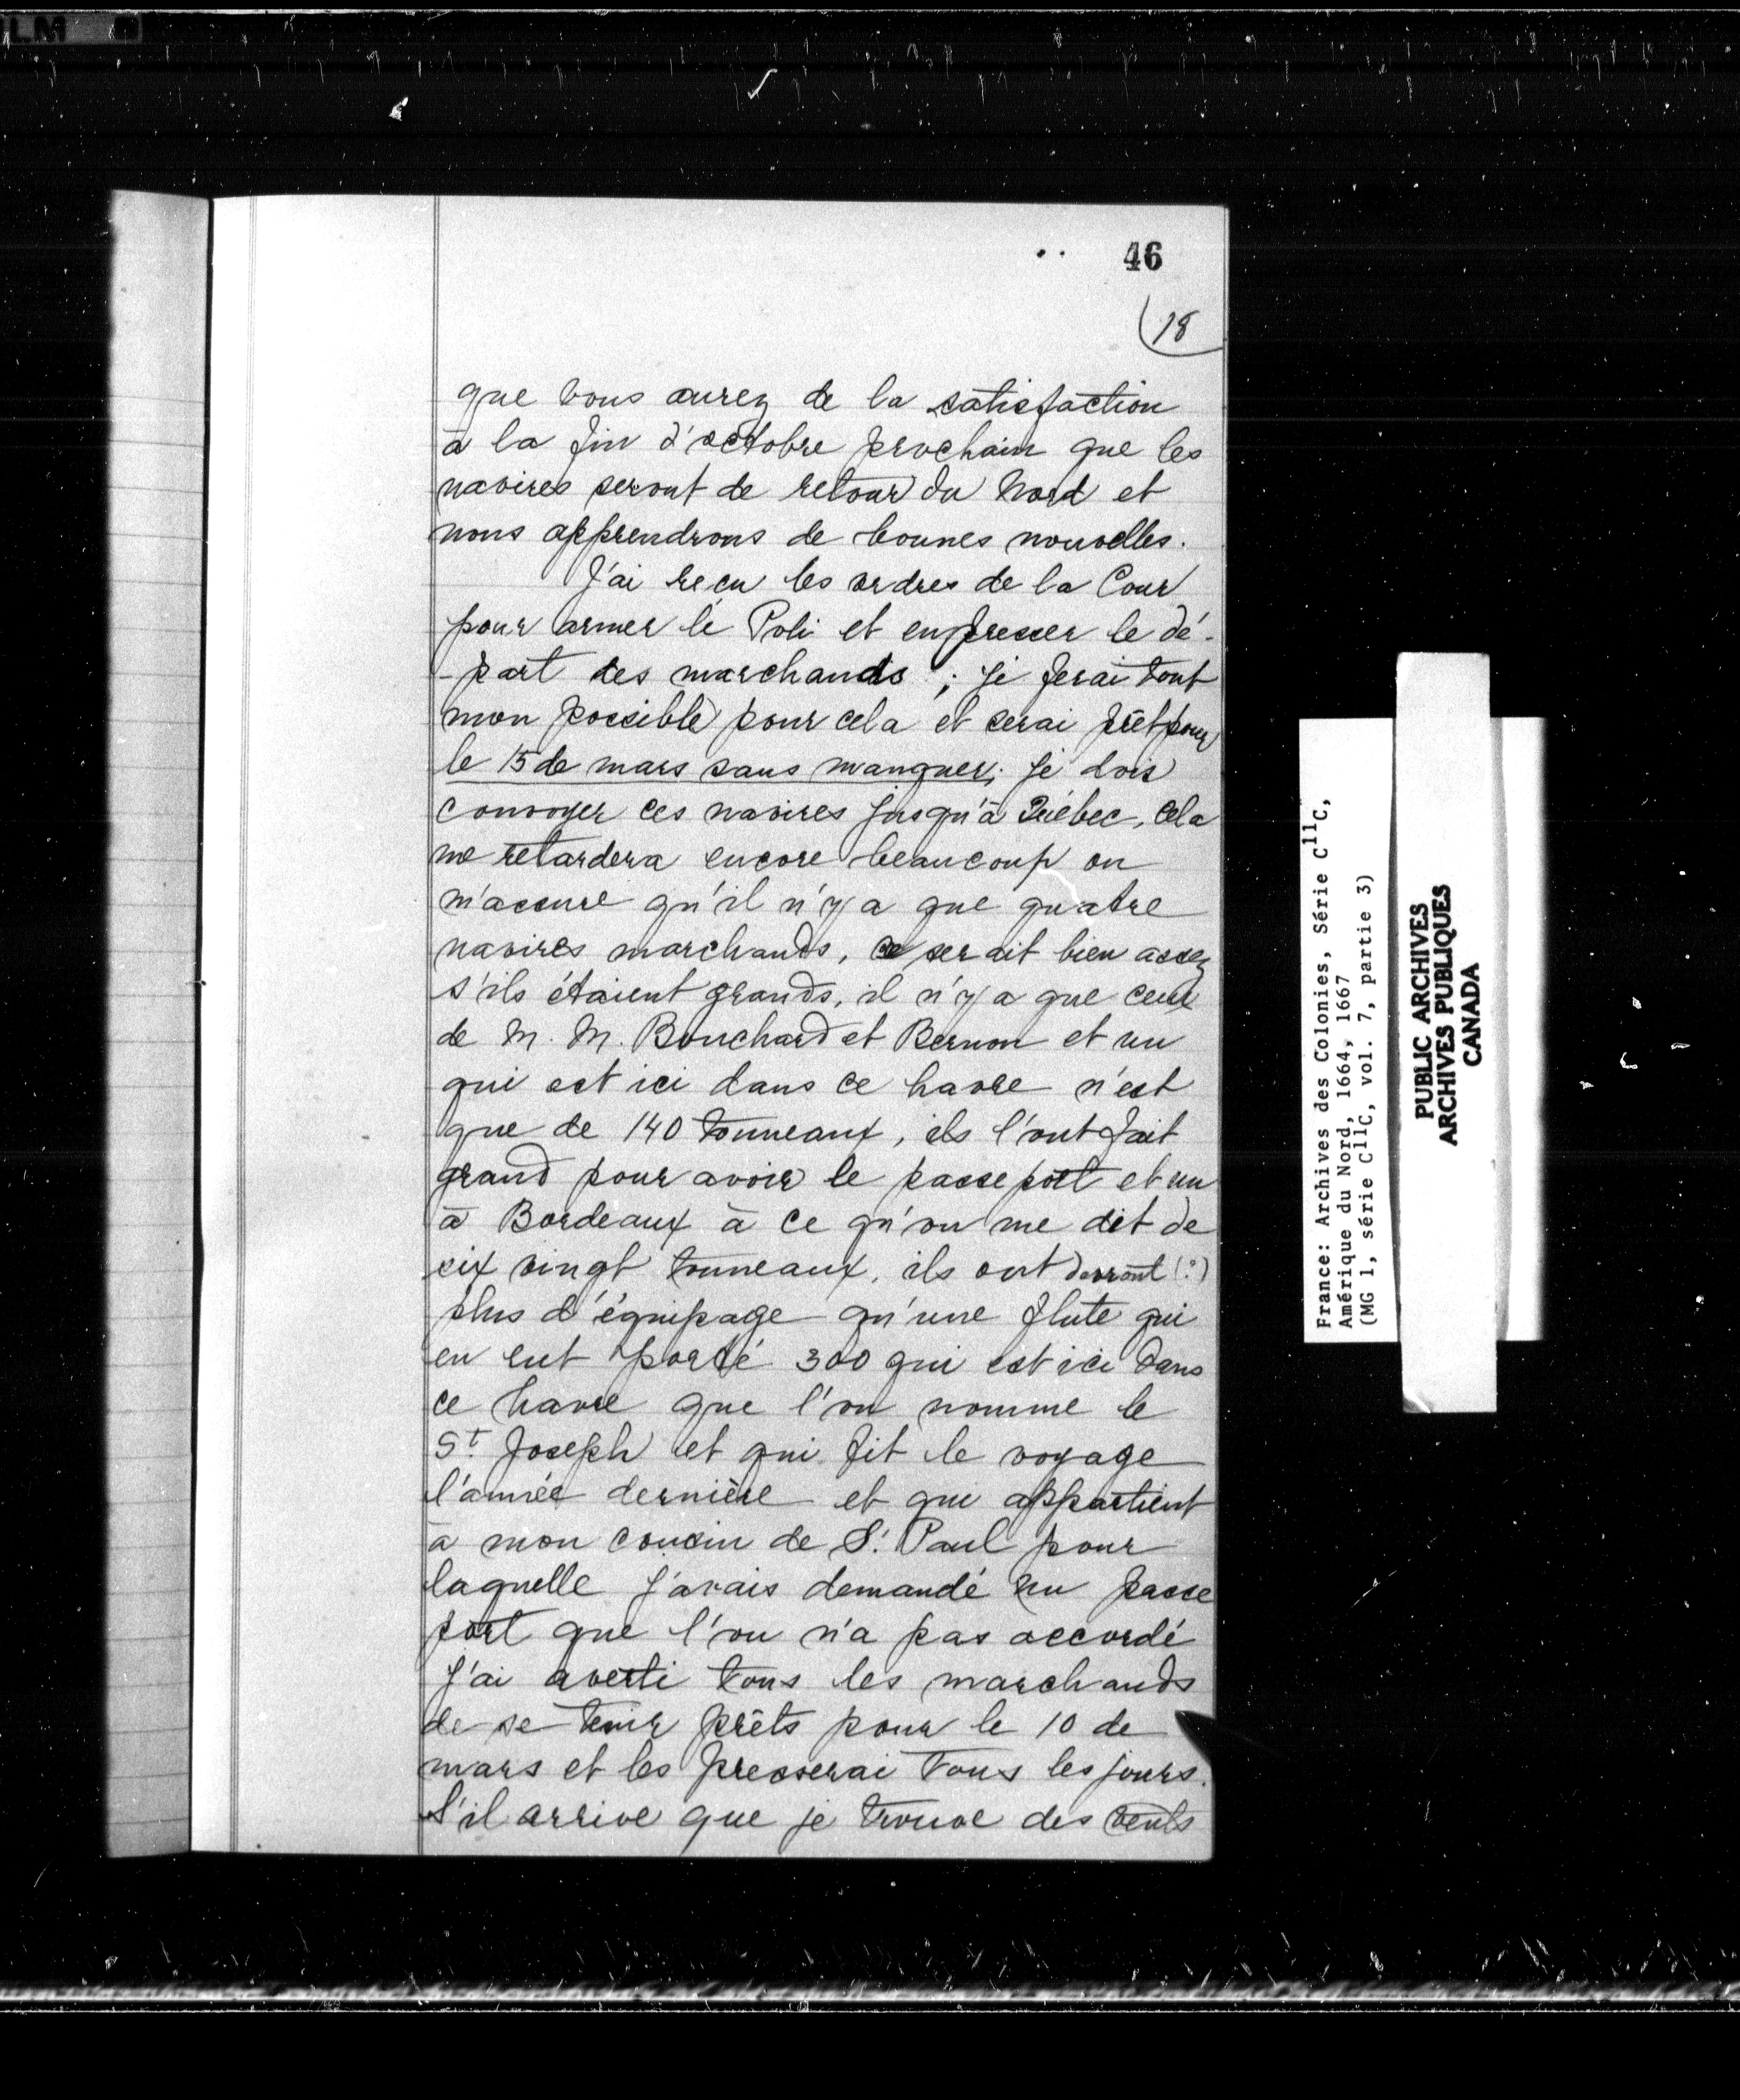 LM
46
18
que vous aurez de la satisfaction
à la fin d'octobre prochain que les
navires seront de retour du Nord et
nous apprendrons de bonnes nouvelles.
J'ai reçu les ordres de la Cour
pour armer le Poli et empresser le dé-
-part des marchands ; je ferai tout
mon possible pour cela et serai prêt pour
le 15 de mars sans manquer; je dois
convoyer ces navires jusqu'à Québec, cela
me retardera encore beaucoup on
m'assure qu'il n'y a que quatre
navires marchands, ce serait bien assez
s'ils étaient grands, il n'y a que ceux
de M. M. Bouchard et Bernon et un
qui est ici dans ce havre n'est
que de 140 tonneaux, ils l'ont fait
grand pour avoir le passeport et un
à Bordeaux à ce qu'on me dit de
six vingt tonneaux, ils ont (?)
plus d'équipage qu'une flute qui
en eut porté 300 qui est ici dans
ce havre que l'on nomme le
St Joseph et qui fit le voyage
l'année dernière et qui appartient
à mon cousin de St. Paul pour
laquelle j'avais demandé un passe
port que l'on n'a pas accordé
J'ai averti tous les marchands
de se tenir prêts pour le 10 de
mars et les presserai tous les jours.
S'il arrive que je trouve des vents
France: Archives des Colonies, Série C11C,
Amérique du Nord, 1664, 1667
(MG 1, série C11C, vol. 7, partie 3)
PUBLIC ARCHIVES
ARCHIVES PUBLIQUES
CANADA